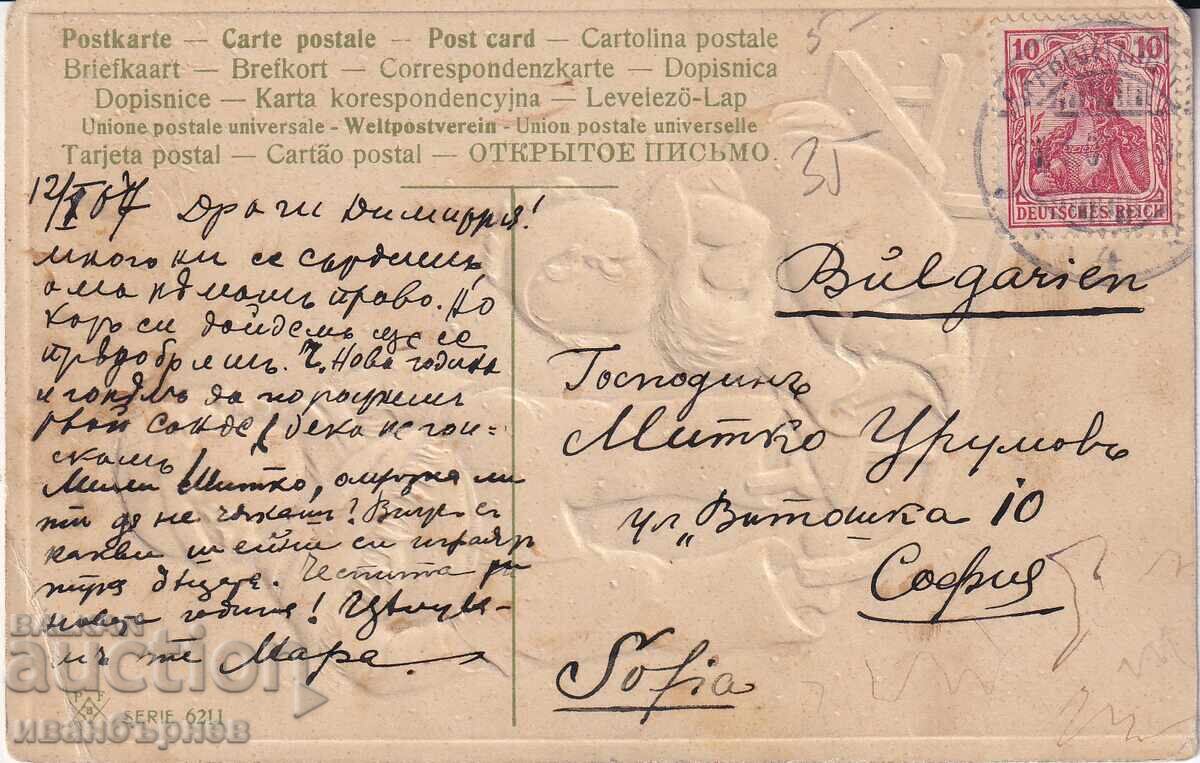 Postkarte — Carte postale — Post card — Cartolina postale
Briefkaart — Brefkort — Correspondenzkarte — Dopisnica
Dopisnice — Karta korespondencyjna — Levelezö-Lap
Unione postale universale - Weltpostverein - Union postale universelle
Tarjeta postal — Cartão postal — ОТКРЫТОЕ ПИСЬМО.
5-
35
10 10
DEUTSCHES REICH
12/I 07 Драги Димитря!
много ни се сърдишъ
ама нямашъ право. Но
си дойдемъ ще се
прѣдобришъ. Ч. Нова година
и да порасниш
Мили Митко, ли
ти да не чакаш?
какви си играят
тука дѣцата. Честита ти
новата година! Цѣлува-
мъ те Мара.
Bŭlgarien
Господинъ
Митко Урумовъ
ул „Витошка 10
София
Sofia
SERIE 6211
BALKAN
auction
иванбърнев